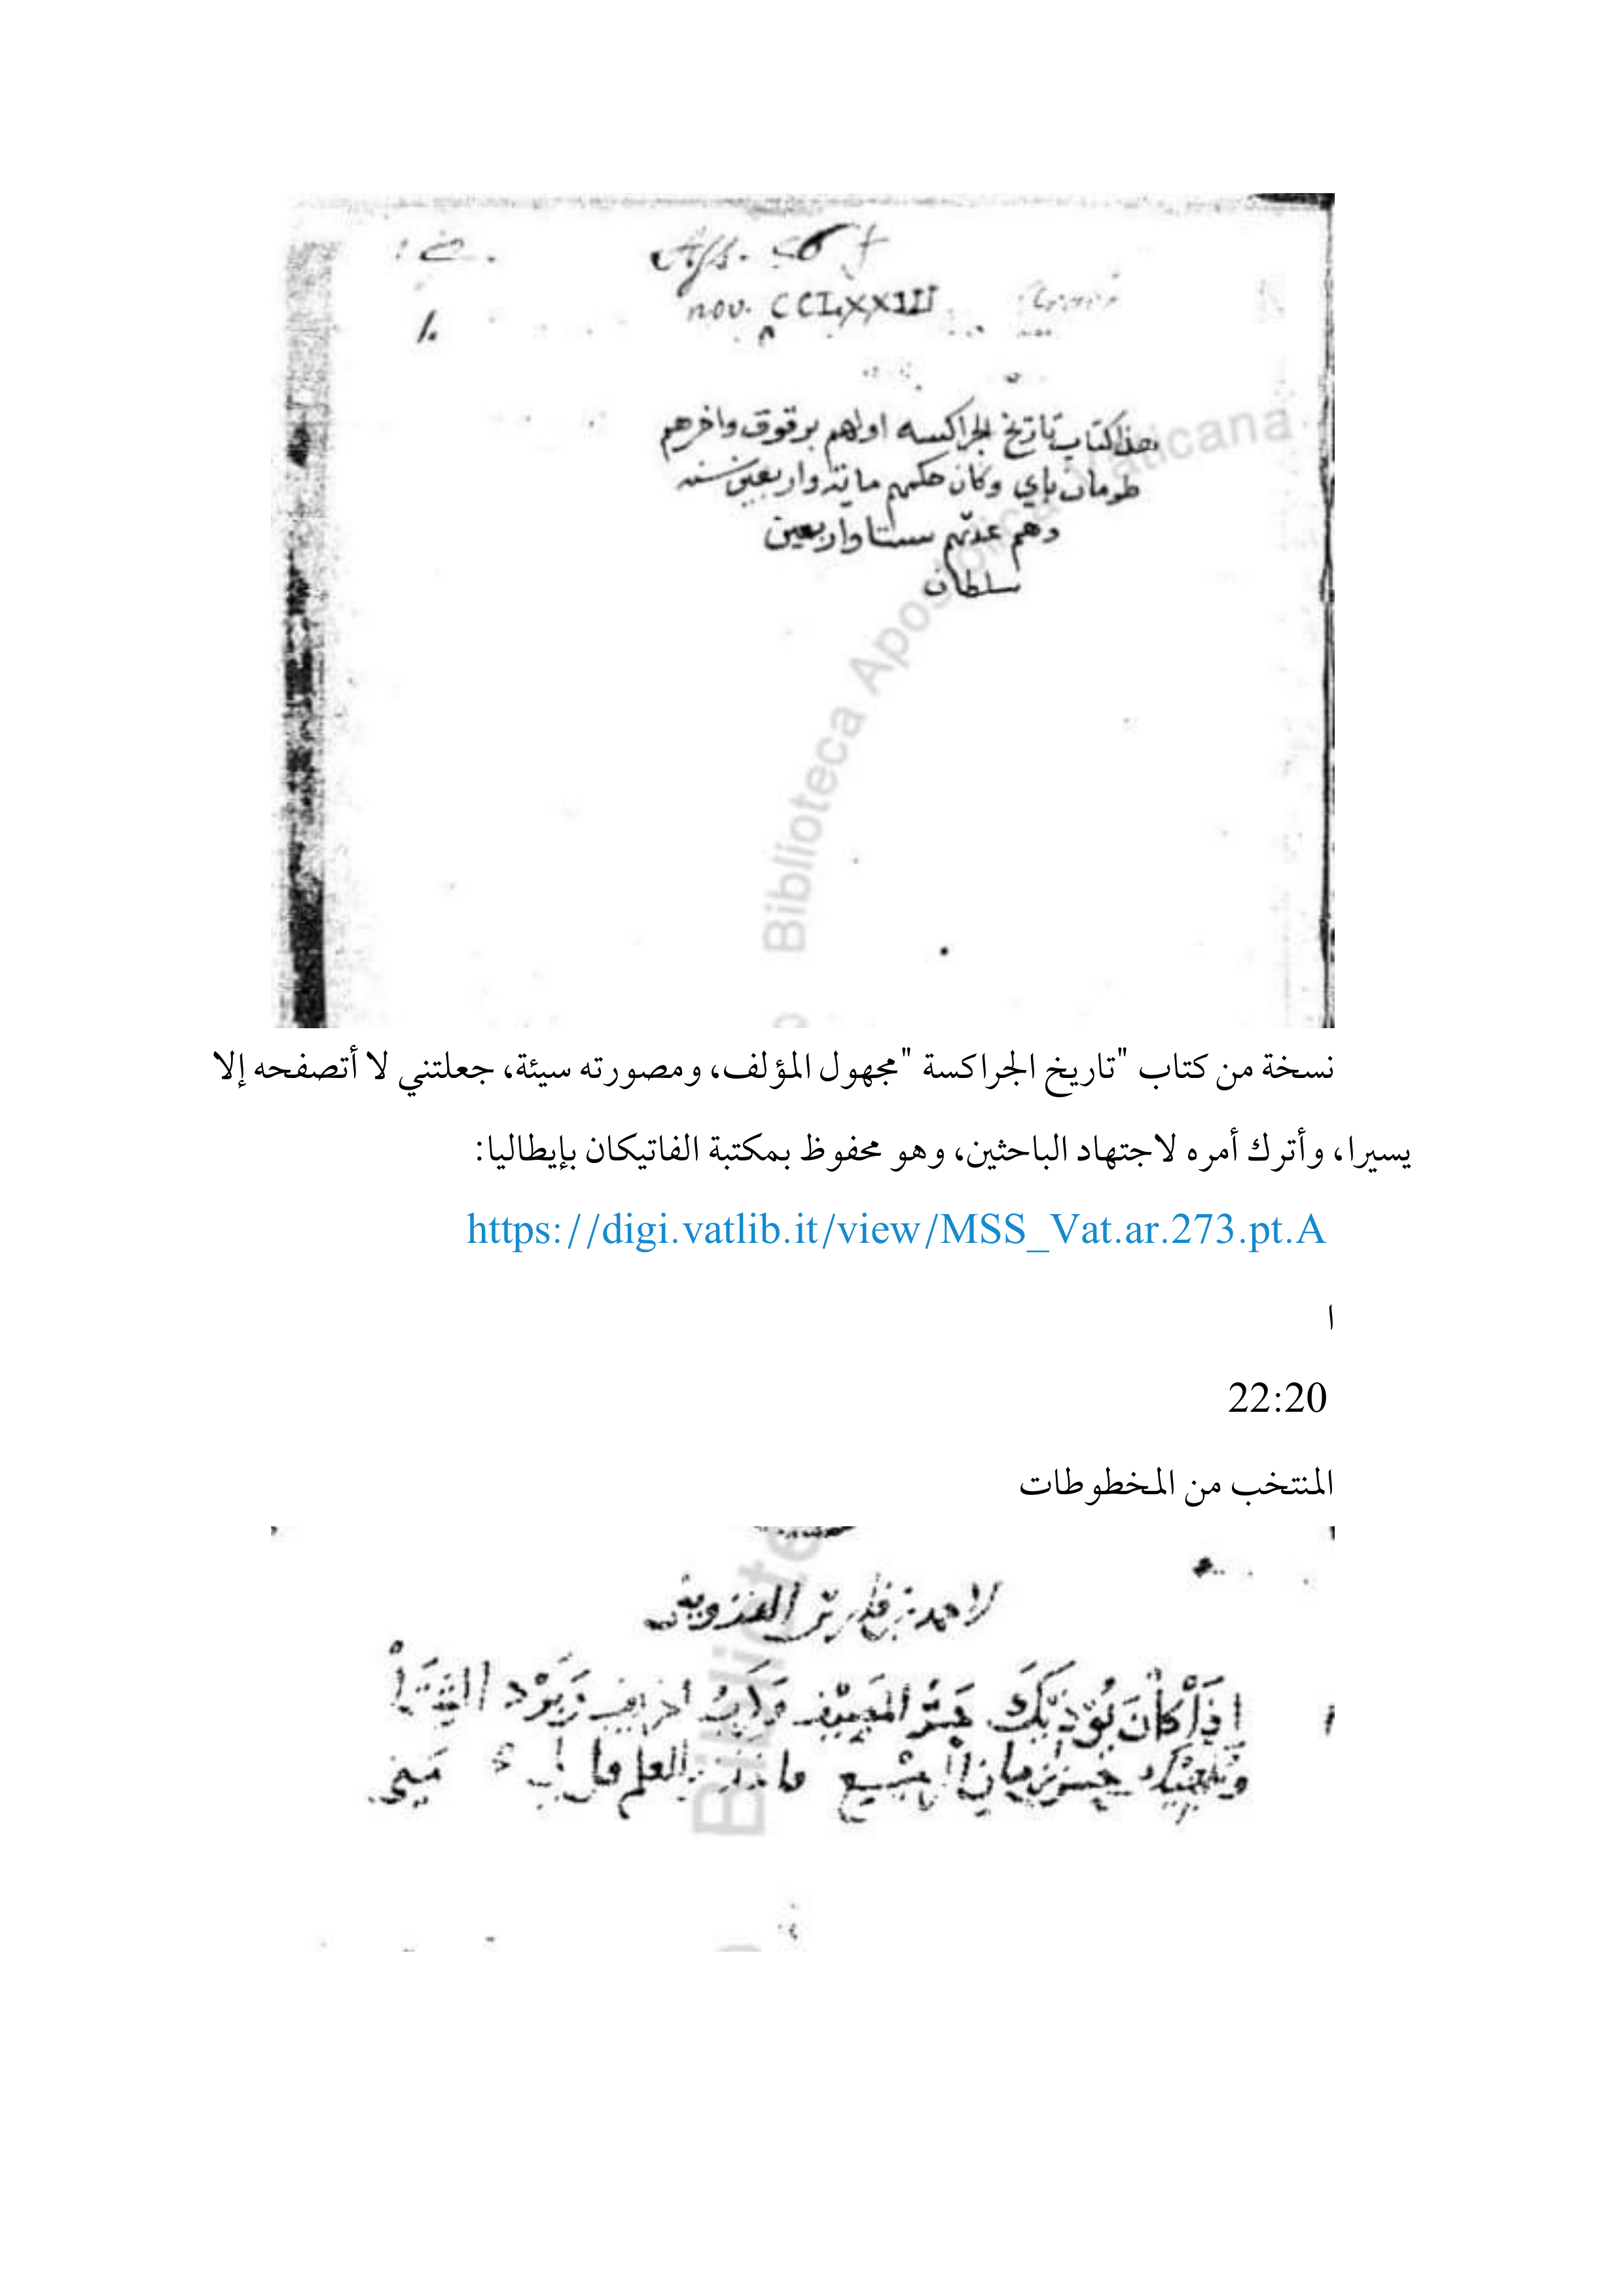 Ass. 56 f
nov. CCLXXIII
1.
هذا كتاب تاريخ الجراكسه اولهم برقوق واخرهم
طومان باي وكان حكمهم ماية واربعين سنه
وهم عدتهم ستا واربعين
سلطان
Biblioteca Apostolica Vaticana
نسخة من كتاب "تاريخ الجراكسة "مجهول المؤلف، ومصورته سيئة، جعلتني لا أتصفحه إلا
يسيرا، وأترك أمره لاجتهاد الباحثين، وهو محفوظ بمكتبة الفاتيكان بإيطاليا:
https://digi.vatlib.it/view/MSS_Vat.ar.273.pt.A
ا
22:20
المنتخب من المخطوطات
القزويني
اذا كان يؤذيك حر المصيف وبرد الشتا
ويلهيك حسن زمان الربيع العلم قل لي متى